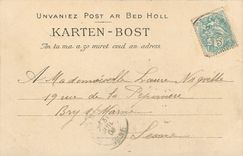 Unvaniez Post ar Bed Holl
KARTEN-BOST
An tu ma a zo miret evid an adress.
A Mademoiselle Laure Nogrette
19 rue de la Pépinière
Bry s/ Marne
Seine